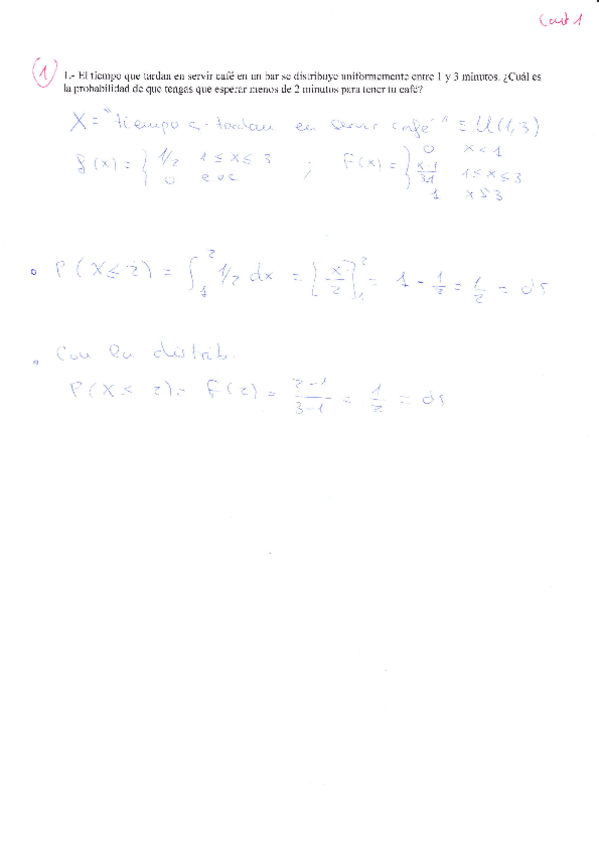 Cont 1
1
1.- El tiempo que tardan en servir café en un bar se distribuye uniformemente entre 1 y 3 minutos. ¿Cuál es
la probabilidad de que tengas que esperar menos de 2 minutos para tener tu café?
X = "tiempo q. tardan en servir café" ≡ U(1,3)
f(x) = { 1/2 1 ≤ x ≤ 3 ; 0 e.o.c ; F(x) = { 0 x < 1 ; x-1/3-1 1 ≤ x ≤ 3 ; 1 x ≥ 3
P(X ≤ 2) = ∫₁² 1/2 dx = [x/2]₁² = 1 - 1/2 = 1/2 = 0'5
Con la distrib.
P(X ≤ 2) = F(2) = 2-1/3-1 = 1/2 = 0'5